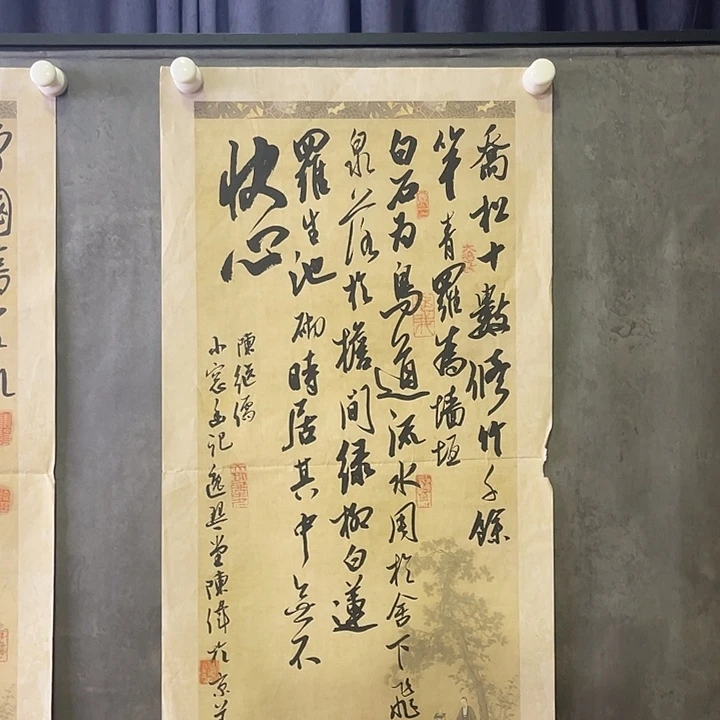 喬松十數修竹千餘
竿青羅為墻垣
白石為鳥道流水周於舍下飛
泉落於檐間綠柳白蓮
羅生池砌時居其中無不
快心
陳繼儒
小窗幽記逸興堂陳偉於京